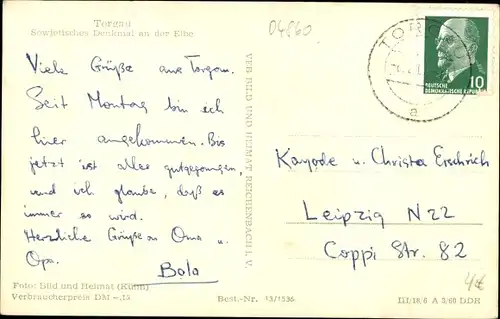 Torgau
Sowjetisches Denkmal an der Elbe
04860
Viele Grüße aus Torgau.
Seit Montag bin ich
hier angekommen. Bis
jetzt ist alles gutgegangen,
und ich glaube, daß es
immer so wird.
Herzliche Grüße an Oma u.
Opa.
Bola
Foto: Bild und Heimat (Kühn)
Verbraucherpreis DM -.15
Best.-Nr. 13/1536
VEB BILD UND HEIMAT REICHENBACH i. V.
TORGAU
a
10
DEUTSCHE
DEMOKRATISCHE REPUBLIK
Kayode u. Christa
Leipzig N22
Coppi Str. 82
4€
III/18/6 A 3/60 DDR